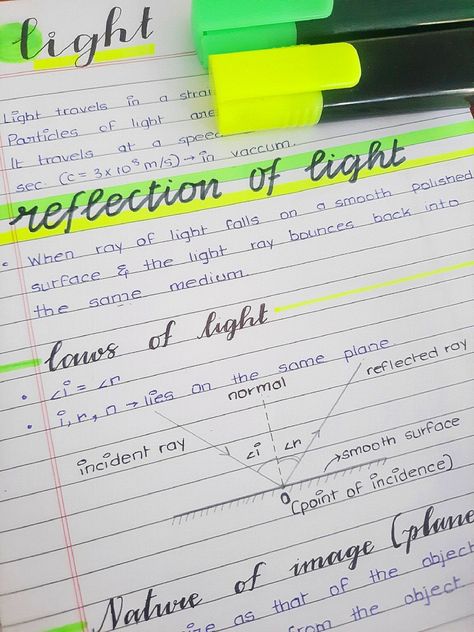 light
Light travels in a
Particles of light are
It travels at a
sec. (c = 3×10⁸ m/s) → in vaccum.
reflection of light
• When ray of light falls on a smooth polished
surface & the light ray bounces back into
the same medium.
laws of light
• ∠i = ∠r
• i, r, n → lies on the same plane
normal
reflected ray
incident ray
∠i ∠r
→ smooth surface
O
(point of incidence)
Nature of image (plane
as that of the object
from the object